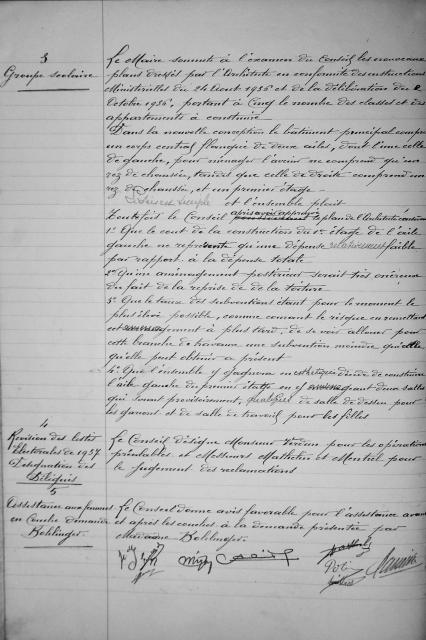 3
Groupe scolaire
Le Maire soumet à l'examen du Conseil les nouveaux
plans dressés par l'Architecte en conformité des instructions
Ministérielles du 24 Août 1956 et de la délibération du 2
Octobre 1956, portant à Cinq le nombre des classes et des
appartements à construire
Dans la nouvelle conception le bâtiment principal comprend
un corps central flanqué de deux ailes, dont l'une celle
de gauche, pour ménager l'avenir ne comprend qu'un
rez de chaussée, tandis que celle de droite comprend un
rez de chaussée, et un premier étage
et l'ensemble plait
Toutefois le Conseil après avoir approuvé le plan de l'Architecte
1° Que le cout de la construction du 1er étage de l'aile
gauche ne représente qu'une dépense relativement faible
par rapport à la dépense totale
2° Qu'un aménagement postérieur serait très onéreux
du fait de la reprise de la toiture
3° Que le taux des subventions étant pour le moment le
plus élevé possible, comme courant le risque en remettant
cet à plus tard, de se voir allouer pour
cette branche de travaux une subvention moindre qu'elle
qu'elle peut obtenir à présent
4° Que l'ensemble y gagnera en esthétique décide de construire
l'aile gauche du premier étage en y deux salles
qui seront provisoirement, de salle de dessin pour
les garçons et de salle de travail pour les filles
4
Révision des listes
électorales de 1957
Désignation des
Délégués
Le Conseil désigne Monsieur pour les opérations
préalables et Messieurs Mathelin et pour
le jugement des réclamations
5
Assistance aux femmes
en Couche
Bohlinger
Le Conseil donne avis favorable pour l'assistance avant
et après les couches à la demande présentée par
Madame Bohlinger.